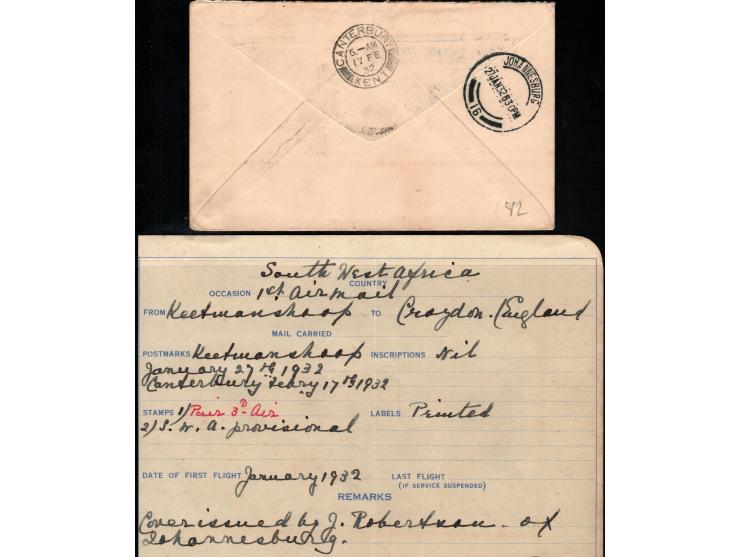 CANTERBURY
6.- AM
17 FE
32
KENT
JOHANNESBURG
16
42
South West Africa
COUNTRY
OCCASION 1st Air mail
FROM Keetmanshoop TO Croydon. (England
MAIL CARRIED
POSTMARKS Keetmanshoop INSCRIPTIONS Nil
January 27th 1932
Canterbury Febry 17th 1932
STAMPS 1) Pair 3D Air LABELS Printed
2) S. W. A. provisional
DATE OF FIRST FLIGHT January 1932 LAST FLIGHT
(IF SERVICE SUSPENDED)
REMARKS
Cover issued by J. Robertson of
Johannesburg.